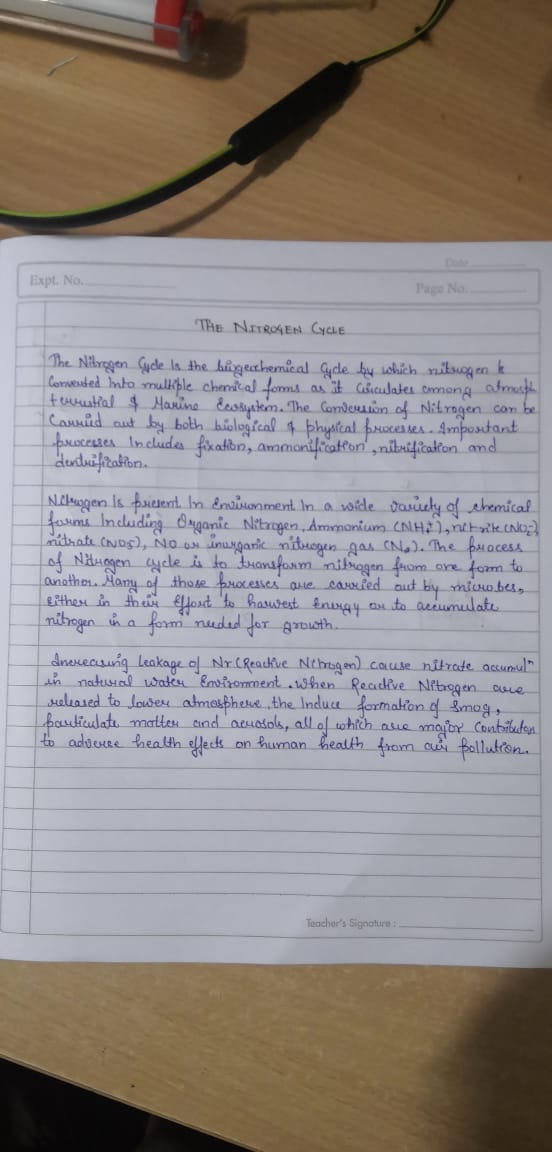 Date
Expt. No.
Page No.
THE NITROGEN CYCLE
The Nitrogen Cycle Is the biogeochemical Cycle by which nitrogen is
Converted Into multiple chemical forms as it Circulates among atmosph
terrestrial & Marine Ecosystem. The Conversion of Nitrogen can be
Carried out by both biological & physical processes. Important
processes Includes fixation, ammonification, nitrification and
denitrification.
Nitrogen Is present In Environment In a wide variety of chemical
forms Including Organic Nitrogen, Ammonium (NH₄⁺), nitrite (NO₂⁻)
nitrate (NO₃⁻), NO or inorganic nitrogen gas (N₂). The process
of Nitrogen cycle is to transform nitrogen from one form to
another. Many of those processes are carried out by microbes,
Either in their Effort to harvest Energy or to accumulate
nitrogen in a form needed for growth.
Increasing Leakage of Nr (Reactive Nitrogen) cause nitrate accumulⁿ
in natural water Environment. When Reactive Nitrogen are
released to lower atmosphere, the Induce formation of Smog,
particulate matter and aerosols, all of which are major Contributen
to adverse health effects on human health from air pollution.
Teacher's Signature :